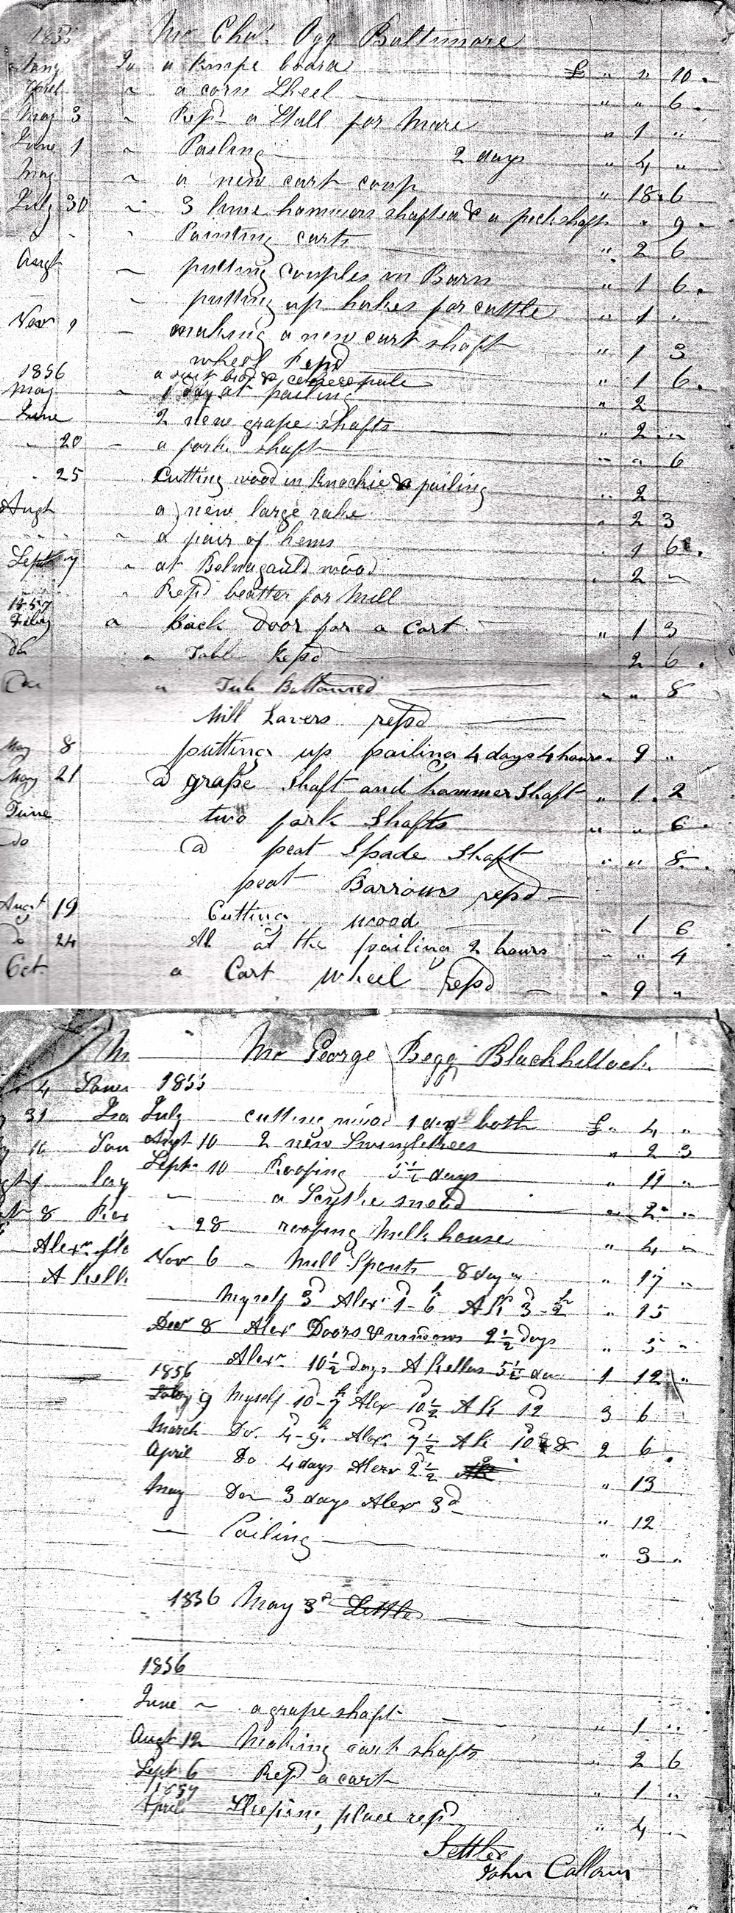 1855 Mr Chas. Ogg Baltimore
Jany To a knife board £ " " 10.
April ~ a corn Sheel " " 6.
May 3 ~ Repd a Stall for Mare " 1 "
June 1 ~ Pailing 2 days " 4 "
May ~ a new cart coup " 18.6
July 30 ~ 3 hammers shafted & a pick shaft " " 9.
" ~ Painting carts " 2 6
Augt ~ putting couples on Barn " 1 6.
~ putting up hakes for cattle " 1 "
Novr 9 ~ making a new cart shaft " 1 3
wheel Repd " 1 6.
1856
May ~ 1 day at pailing " 2
June 2 new grape shafts " 2 "
~ 20 ~ a fork shaft " " 6
. 25 Cutting wood in Knockie & pailing " 2
Augt a new large rake " 2 3
~ a pair of hems " 1 6.
Sept 7 ~ at Belnagauld wood " 2 ~
~ Repd beatter for Mill
1857
Feby a Back Door for a Cart " 1 3
do a Table Repd 2 6.
Do a Tub Bottomed " " 8
Mill Lavers repd
May 8 putting up pailing 4 days 4 hours " 9 "
May 21 a grape shaft and hammer shaft " 1. 2
June two fork shafts " " 6.
do a peat Spade Shaft " " 8.
peat Barrows repd
Augt 19 Cutting wood " 1 6
Do 24 at the pailing 2 hours " " 4
Oct a Cart wheel repd " 9 "
M
Mr George Begg Blackhillock
1855
July cutting wood 1 day both £ " 4 "
Augt 10 2 new Swingletrees " 2 3
Sept 10 Roofing 5½ days " 11 "
~ a Scythe snead " 2 "
" 28 roofing Milk house " 4 "
Novr 6 ~ Mill Spouts 8 days " 17 "
Myself 3d Alexr 1-6h AK 3-½ " 15
Decr 8 Alexr Doors & windows 2½ days " 5 "
Alexr 10½ days A Kellas 5½ da 1 12 "
1856
Feby 9 Myself 10-7h Alexr 10½ AK 12 3 6
March Do. 4-9h Alexr 7½ AK 10 2 6.
April Do 4 days Alexr 2½ " 13
May Do 3 days Alexr 3d " 12
~ Pailing " 3 "
1856 May 3d Settled
1856
June ~ a grape shaft " 1 "
Augt 12 Making cart shafts " 2 6
Sept 6 Repd a cart " 1 "
1857
April Sleeping place repd " 4 ~
Settled
John Callam